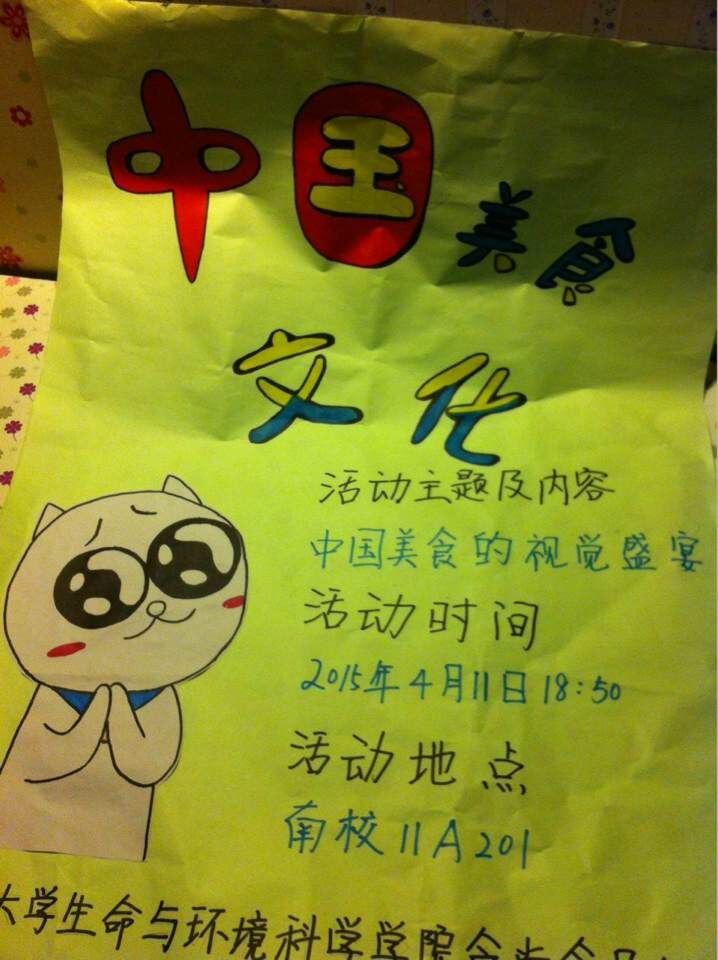 中国美食
文化
活动主题及内容
中国美食的视觉盛宴
活动时间
2015年4月11日18:50
活动地点
南校11A201
大学生命与环境科学学院